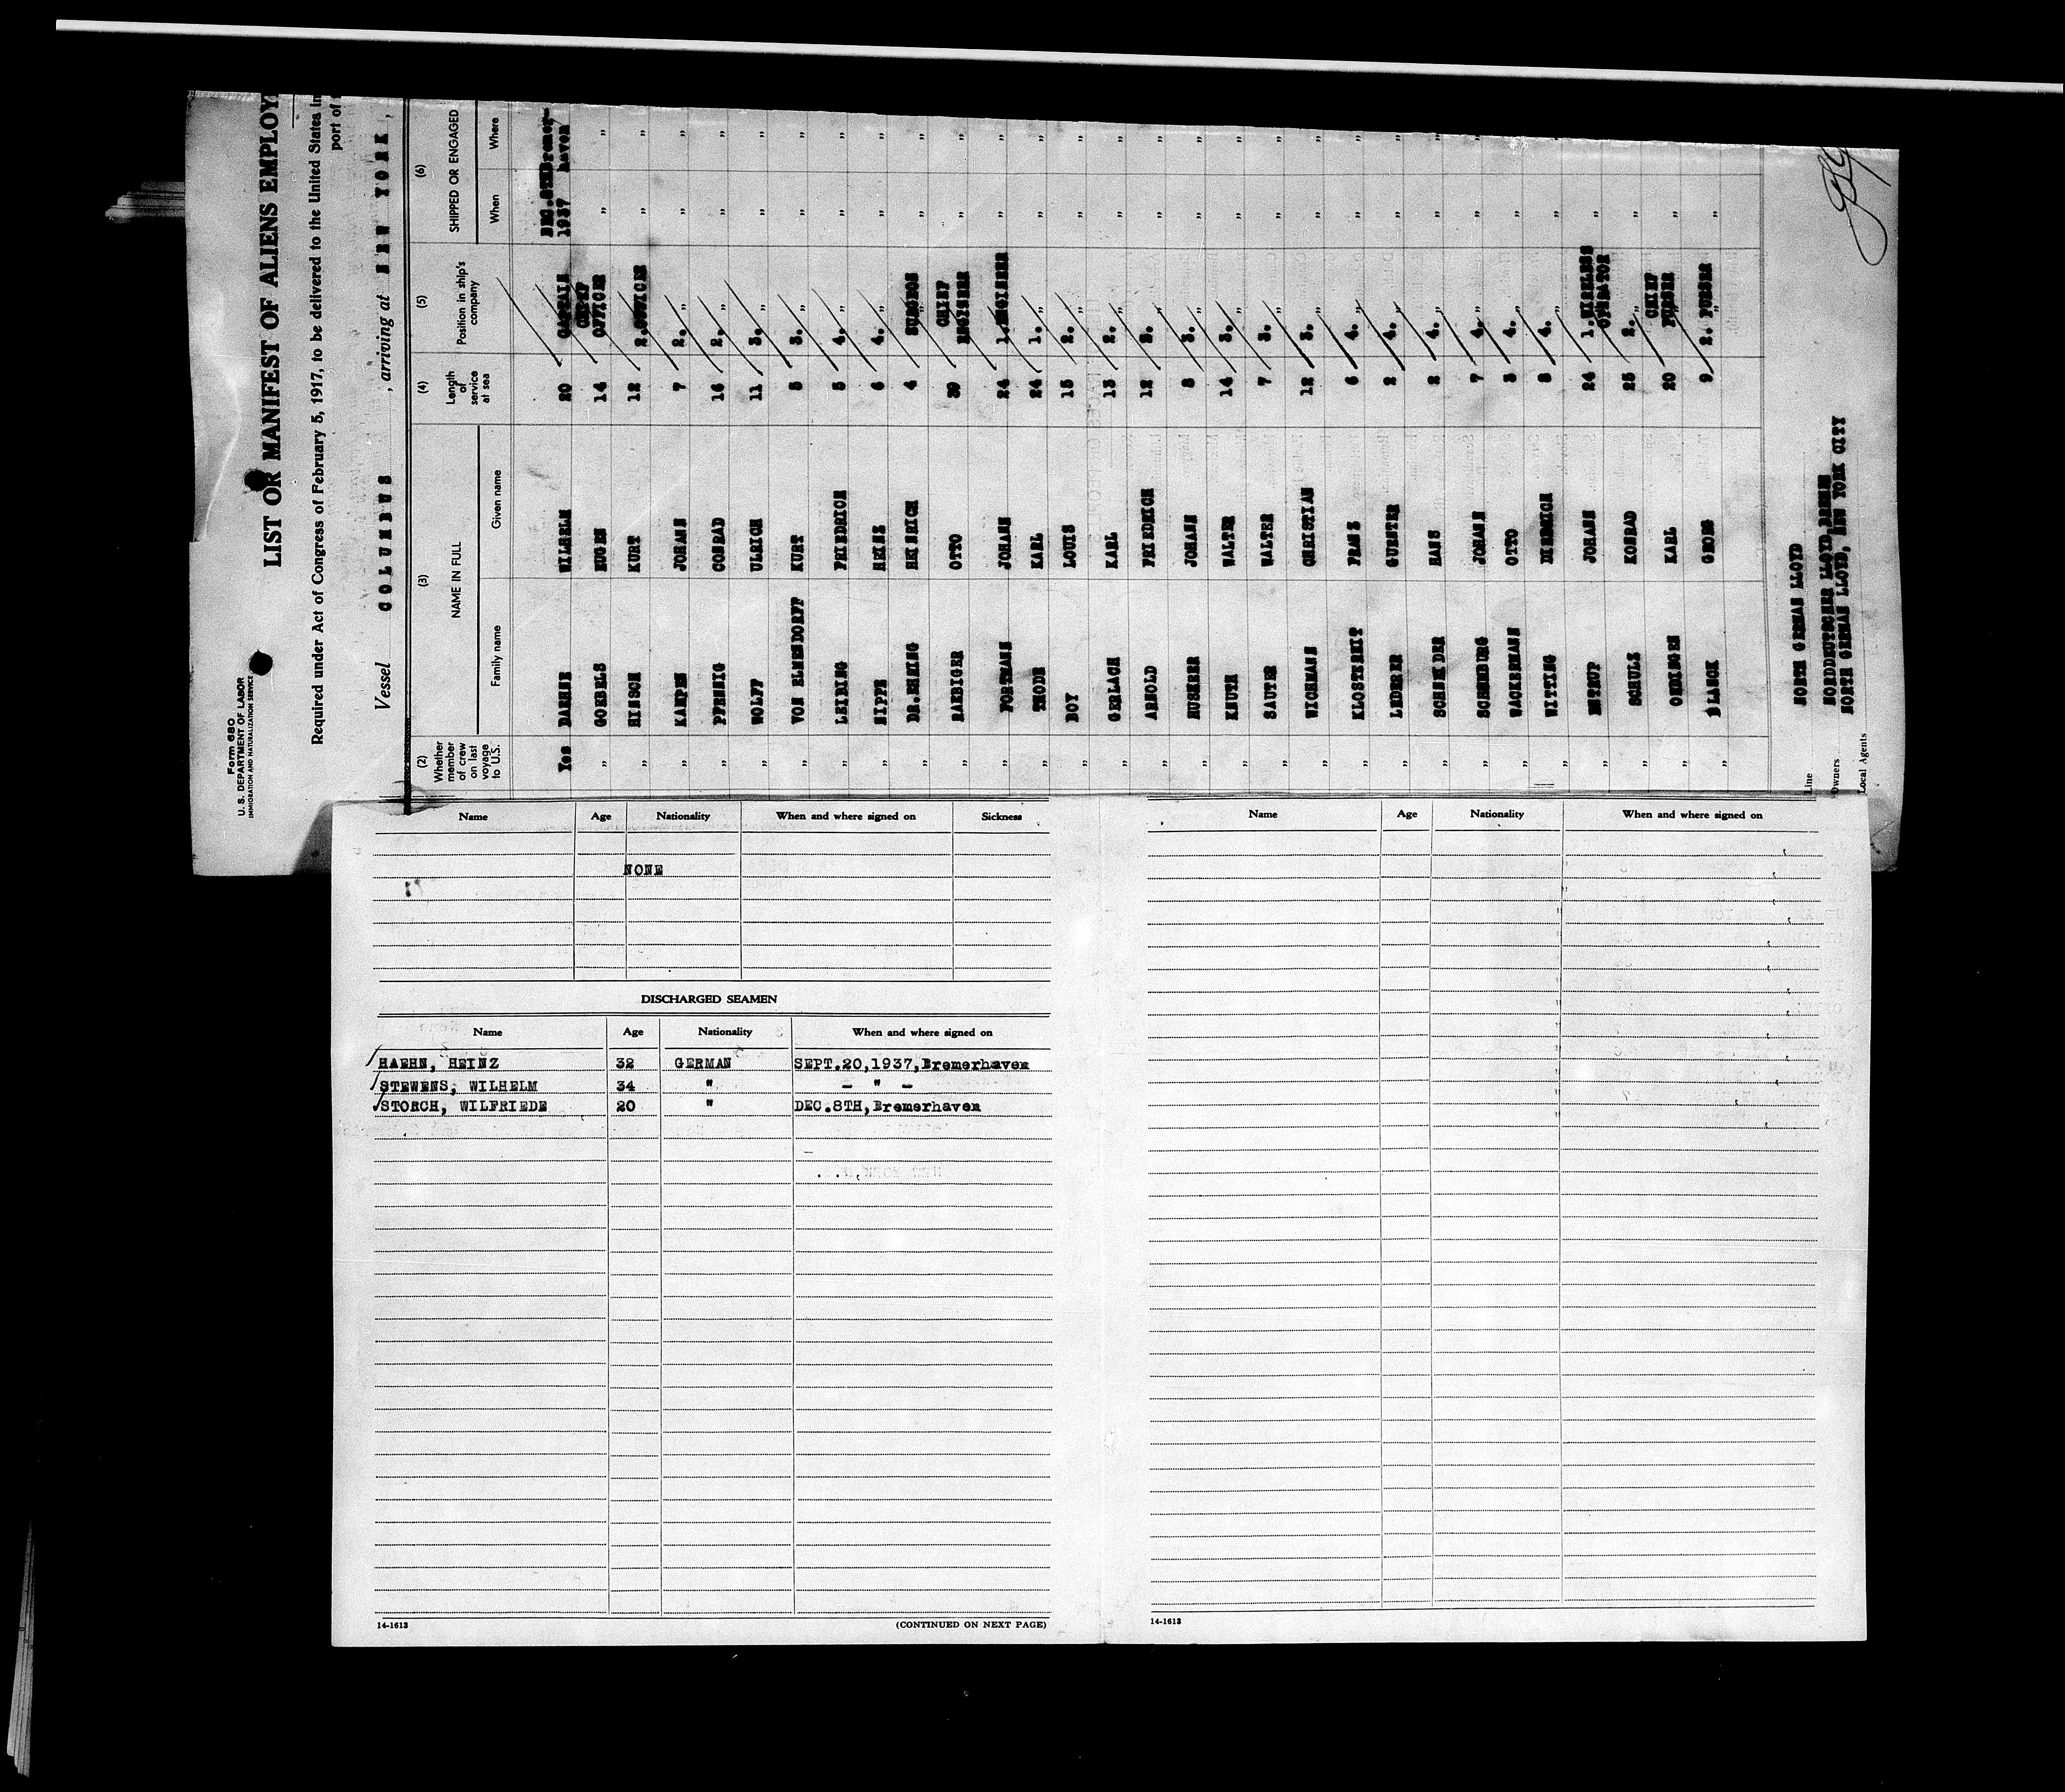 Form 680
U. S. DEPARTMENT OF LABOR
IMMIGRATION AND NATURALIZATION SERVICE
LIST OR MANIFEST OF ALIENS EMPLOY
Required under Act of Congress of February 5, 1917, to be delivered to the United States
port of
Vessel COLUMBUS , arriving at NEW YORK ,
(2) Whether member of crew on last voyage to U.S. (3) NAME IN FULL Family name Given name (4) Length of service at sea (5) Position in ship's company (6) SHIPPED OR ENGAGED When Where
Yes DAEHNE WILHELM 20 CAPTAIN DEC. 1937 Bremer- haven
" GOEBELS EUGEN 14 CHIEF OFFICER " "
" HINSCH KURT 12 2.OFFICER " "
" KAMPEN JOHANN 7 2. " " "
" PFENNIG CONRAD 16 2. " " "
" WOLFF ULRICH 11 3. " " "
" VON ELMENDORFF KURT 5 3. " " "
" LEIDING FRIEDRICH 5 4. " " "
" NIPPE HEINZ 6 4. " " "
" DR. HEINRICH 4 SURGEON " "
" RAEDIGER OTTO CHIEF ENGINEER " "
" FORTMANN JOHANN 24 1.ENGINEER " "
" THODE KARL 24 1. " " "
" BOY LOUIS 15 2. " " "
" GERLACH KARL 13 2. " " "
" ARNOLD FRIEDRICH 12 " " "
" JOHANN 8 3. " " "
" KNUTH WALTER 14 3. " " "
" SAUTER WALTER 7 3. " " "
" WICHMANN CHRISTIAN 12 3. " " "
" KLOSTREIT FRANZ 6 4. " " "
" LEDERER GUENTER 2 4. " " "
" SCHNEIDER HANS 2 4. " " "
" JOHANN 7 4. " " "
" WACKERMANN OTTO 3 4. " " "
" WITTING DIEDRICH 8 4. " " "
" ENTRUP JOHANN 24 1.WIRELESS OPERATOR " "
" SCHULZ KONRAD 25 2. " " "
" KARL 20 CHIEF PURSER " "
" BLANCK GEORG 9 2. PURSER "
Line NORTH GERMAN LLOYD
Owners NORDDEUTSCHER LLOYD, BREMEN
Local Agents NORTH GERMAN LLOYD, NEW YORK CITY
Name Age Nationality When and where signed on Sickness
NONE
DISCHARGED SEAMEN
Name Age Nationality When and where signed on
HAEHN, HEINZ 32 GERMAN SEPT.20,1937,Bremerhaven
STEWENS, WILHELM 34 " — " —
STORCH, WILFRIEDE 20 " DEC.8TH,Bremerhaven
14-1613 (CONTINUED ON NEXT PAGE)
Name Age Nationality When and where signed on
14-1613